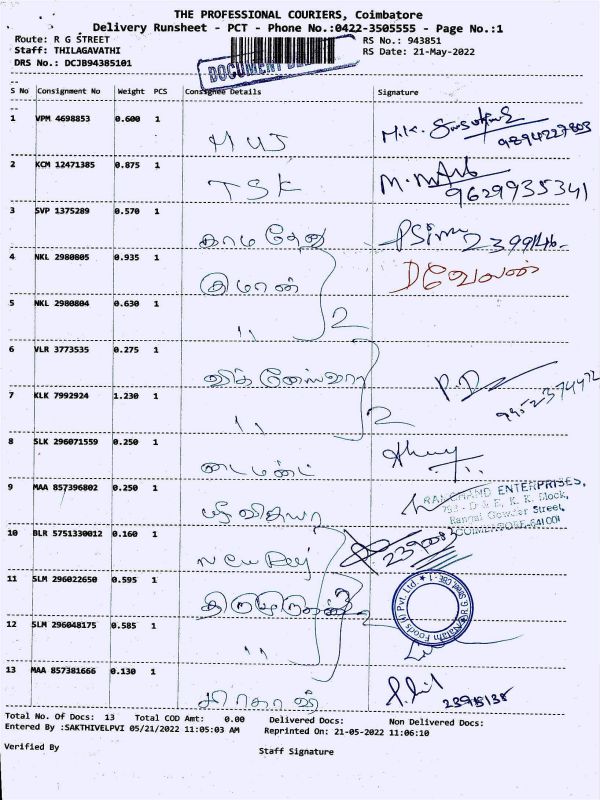 THE PROFESSIONAL COURIERS, Coimbatore
Delivery Runsheet - PCT - Phone No.:0422-3505555 - Page No.:1
Route: R G STREET RS No.: 943851
Staff: THILAGAVATHI RS Date: 21-May-2022
DRS No.: DCJB94385101
DOCUMENT
S No Consignment No Weight PCS Consignee Details Signature
1 VPM 4698853 0.600 1 M U J
9894227803
2 KCM 12471385 0.875 1 T S K
9629935341
3 SVP 1375289 0.570 1 காமதேனு
4 NKL 2980805 0.935 1 D வேலன்
5 NKL 2980804 0.630 1 " 2
6 VLR 3773535 0.275 1 P.D
7 KLK 7992924 1.230 1 " 2
8 SLK 296071559 0.250 1 டைமண்ட்
9 MAA 857396802 0.250 1 ஸ்ரீ விஜயா
ENTERPRISES,
D & E, K. K. Block,
Rangai Gowder Street,
COIMBATORE-641001
10 BLR 5751330012 0.160 1
11 SLM 296022650 0.595 1
Foods (I) Pvt. Ltd. *
12 SLM 296048175 0.585 1 "
13 MAA 857381666 0.130 1
Total No. Of Docs: 13 Total COD Amt: 0.00 Delivered Docs: Non Delivered Docs:
Entered By :SAKTHIVELPVI 05/21/2022 11:05:03 AM Reprinted On: 21-05-2022 11:06:10
Verified By Staff Signature